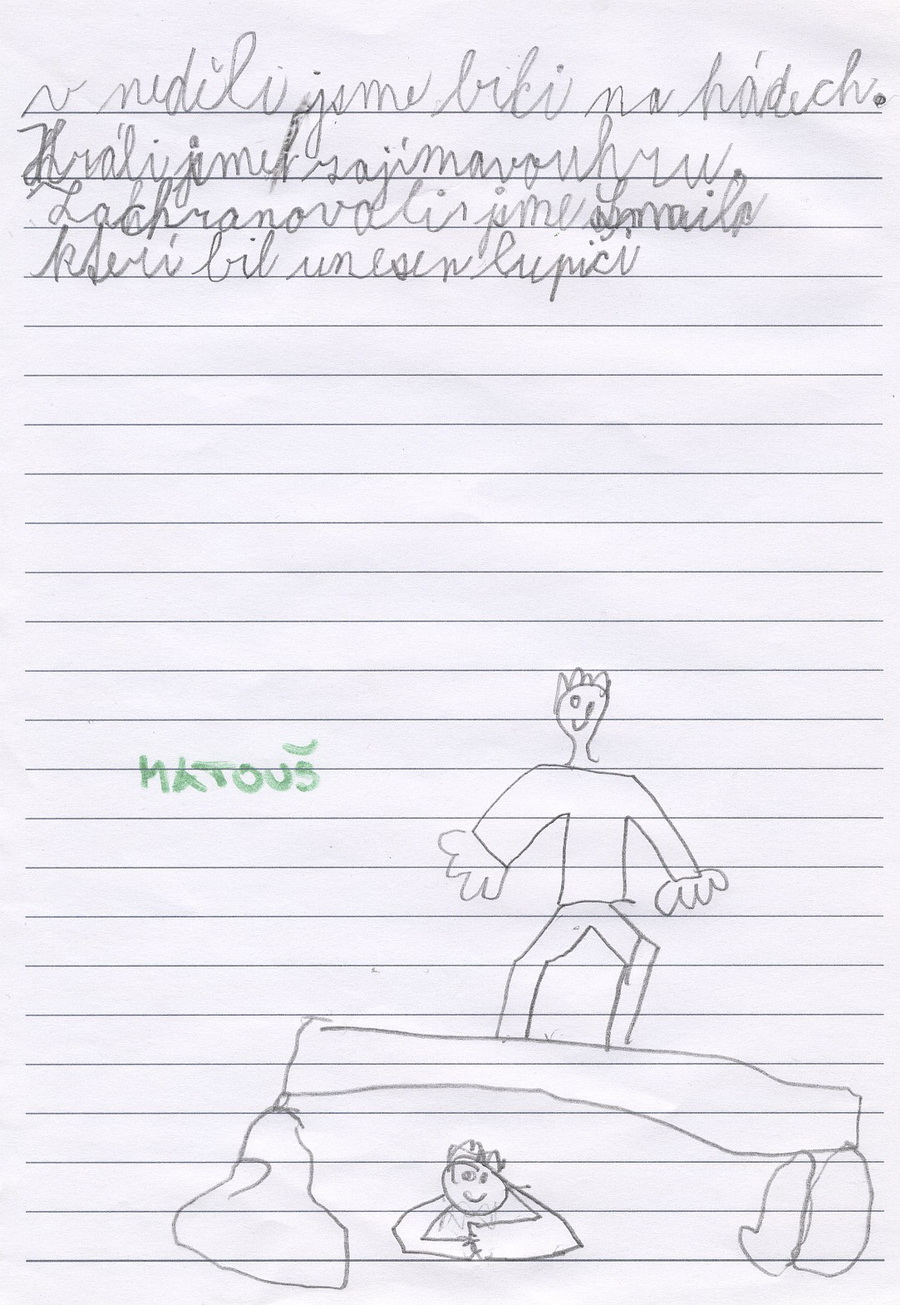 v neděli jsme bili na hádech.
Hráli jsme zajímavou hru.
Zachranovali jsme Smraila
kterí bil unesen lupiči
MATOUŠ